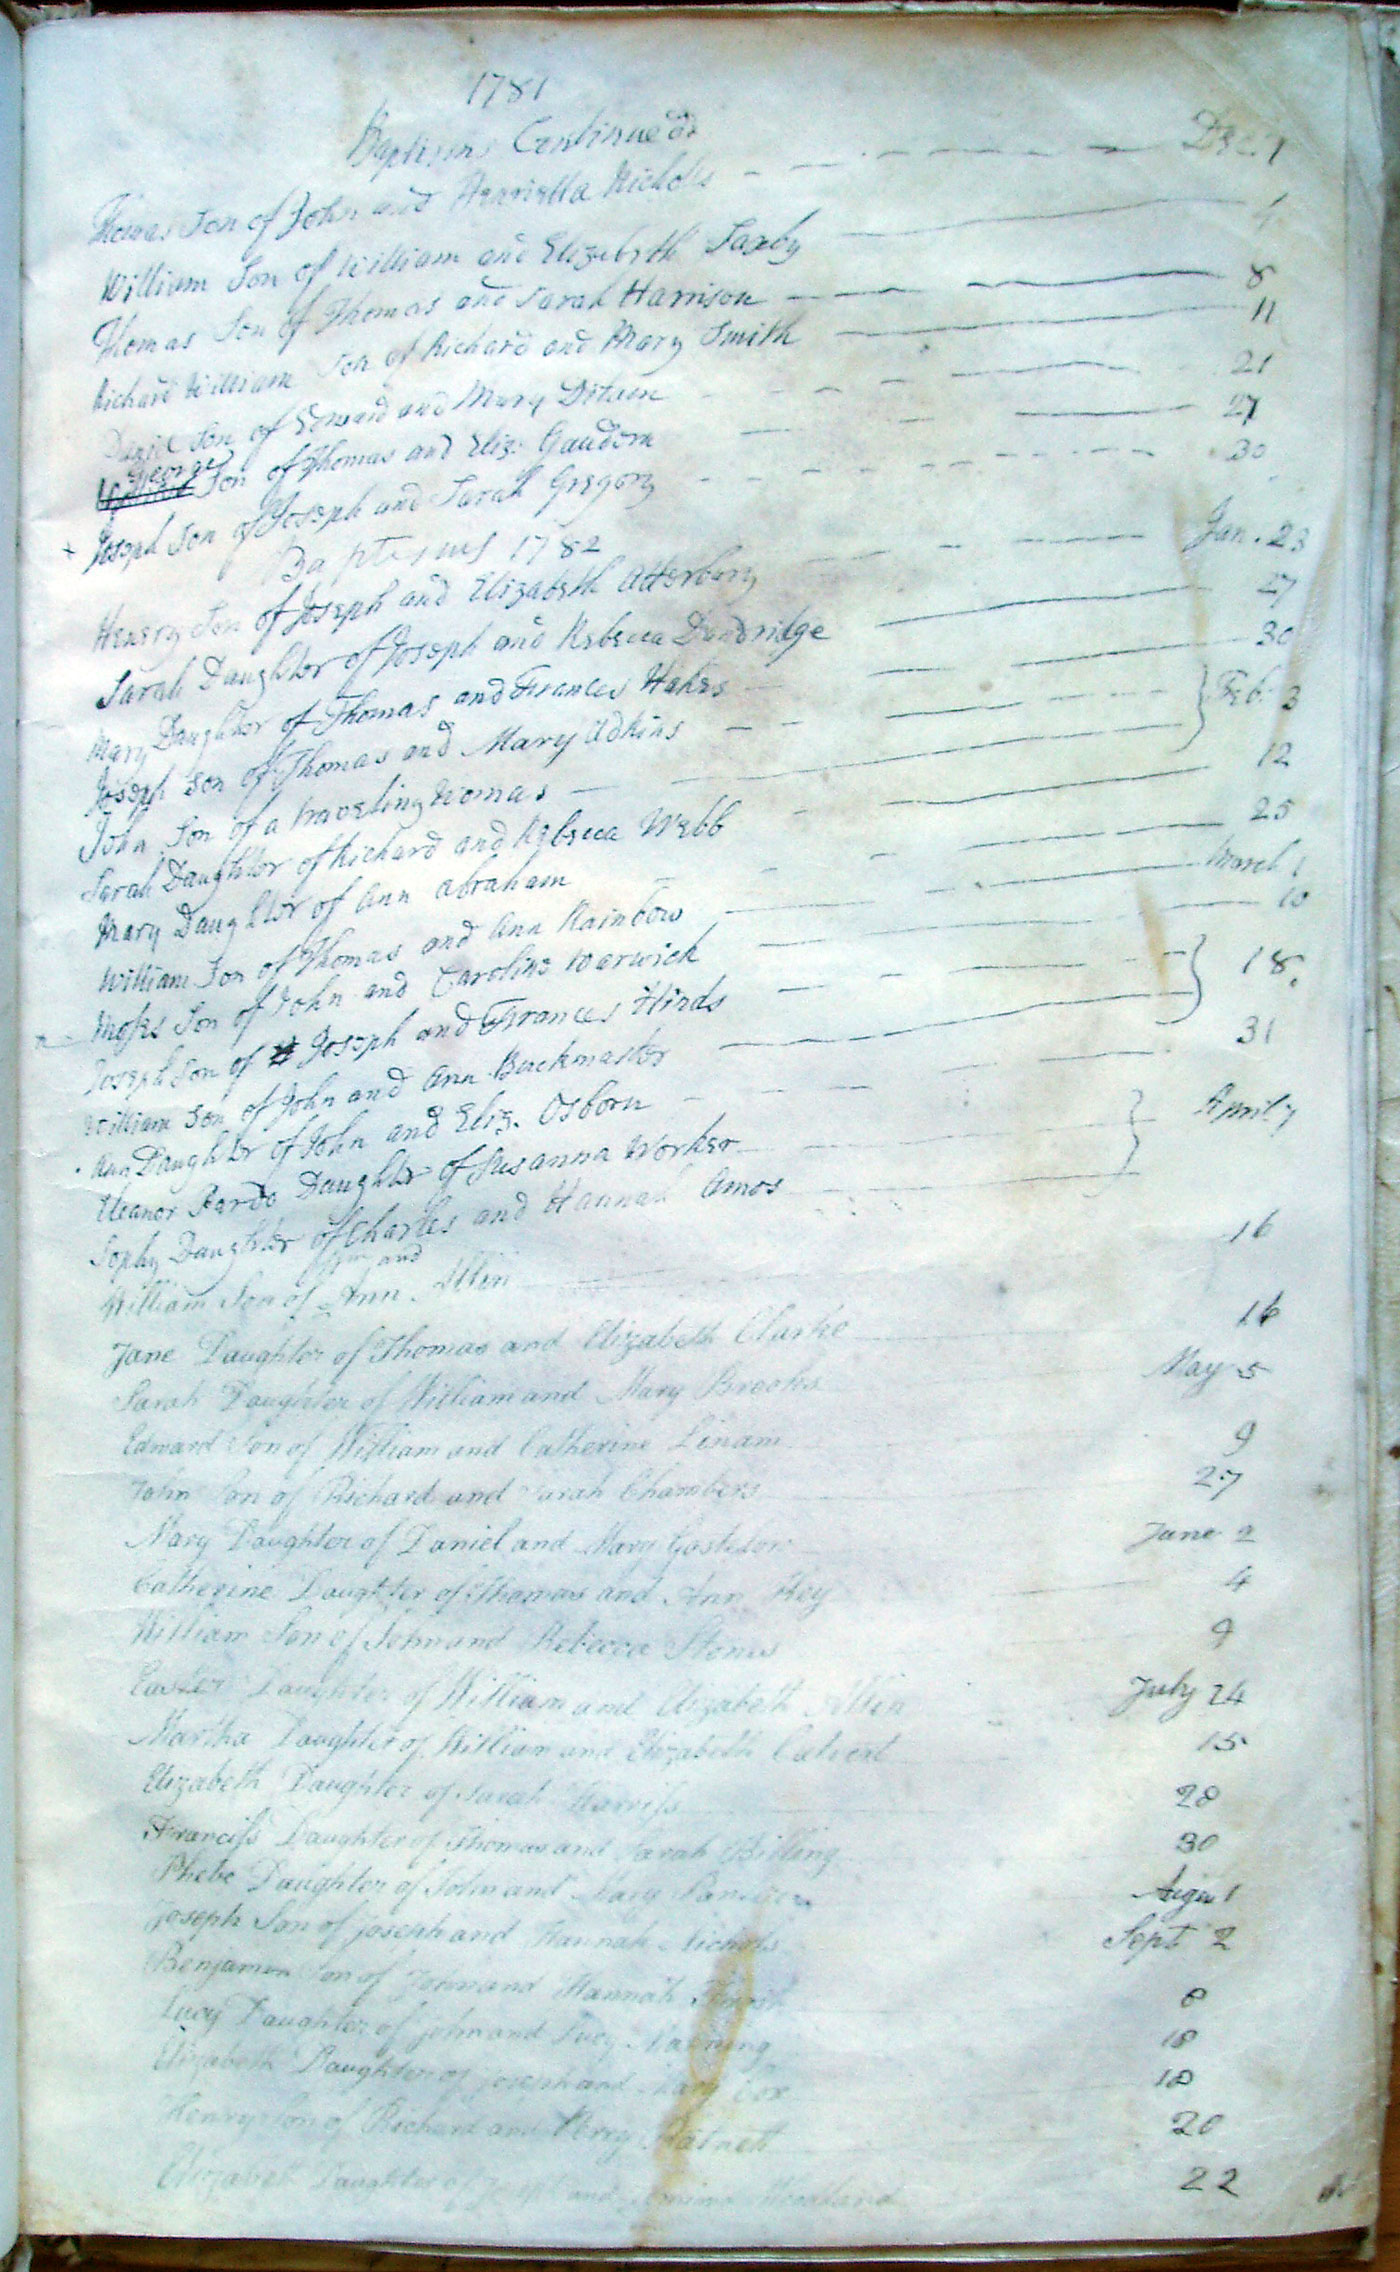 1781
Baptisms Continued
Thomas Son of John and Henrietta Nichols Dec. 1
William Son of William and Elizabeth Saxby 4
Thomas Son of Thomas and Sarah Harrison 8
Richard William Son of Richard and Mary Smith 11
Son of Edward and Mary 21
George Son of Thomas and Eliz: Gaudern 27
+ Joseph Son of Joseph and Sarah Gregory 30
Baptisms 1782
Henery Son of Joseph and Elizabeth Atterbury Jan. 23
Sarah Daughter of Joseph and Rebecca Dandridge 27
Mary Daughter of Thomas and Frances Hakes 30
Joseph Son of Thomas and Mary Adkins Feb: 3
John Son of a traveling Woman
Sarah Daughter of Richard and Rebecca Webb 12
Mary Daughter of Ann Abraham 25
William Son of Thomas and Ann Rainbow March 1
Moses Son of John and Caroline Warwick 10
Joseph Son of Joseph and Frances Hinds 18.
William Son of John and Ann Buckmaster
Ann Daughter of John and Eliz. Osborn 31
Eleanor Daughter of Susanna Worker April 7
Sophy Daughter of Charles and Hannah Amos
William Son of and Ann Allin 16
Jane Daughter of Thomas and Elizabeth Clarke 16
Sarah Daughter of William and Mary Brooks May 5
Edward Son of William and Catherine Linam 9
John Son of Richard and Sarah Chambers 27
Mary Daughter of Daniel and Mary June 2
Catherine Daughter of Thomas and Ann Key 4
William Son of John and Rebecca 9
Easter Daughter of William and Elizabeth Allin July 14
Martha Daughter of William and Elizabeth Calvert 15
Elizabeth Daughter of Sarah Harriss 28
Franciss Daughter of Thomas and Sarah Billing 30
Phebe Daughter of John and Mary Augu 1
Joseph Son of Joseph and Hannah Nichols Sept 2
Benjamen Son of John and Hannah 8
Lucy Daughter of John and Lucy Manning 18
Elizabeth Daughter of Joseph and Mary Cox 18
Henry Son of Richard and Ratnett 20
Elizabeth Daughter of and 22